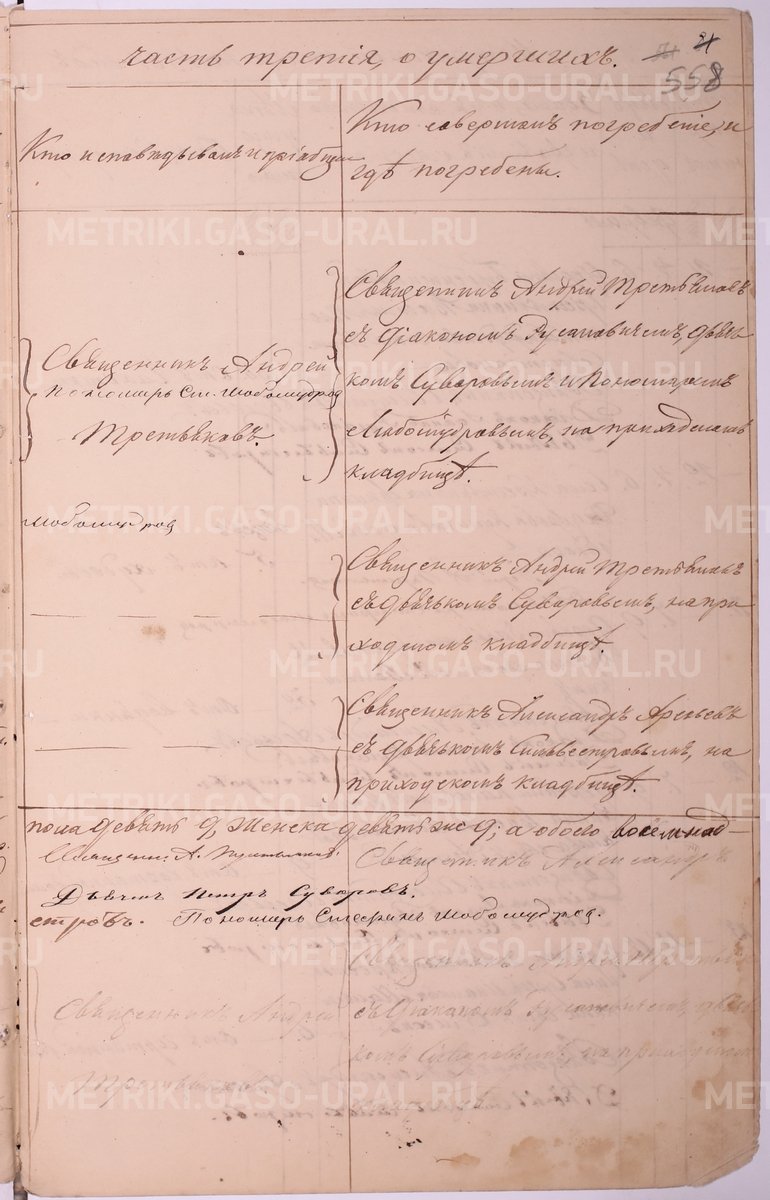 часть третія, о умершихъ.
21
558
Кто исповѣдывалъ и пріобщалъ
Кто совершалъ погребеніе, и
гдѣ погребены.
Священникъ Андрей
Пономарь Ст. Любомудров
Третьяковъ.
Священникъ Андрей Третьяковъ
съ діакономъ Русановичемъ, дьяч-
комъ Суваровымъ и Пономаремъ
Любомудровымъ, на приходскомъ
кладбищѣ.
Любомудров
Священникъ Андрей Третьяковъ
съ дьячькомъ Суваровымъ, на при
ходскомъ кладбищѣ.
Священникъ Александръ Арефьевъ
съ дьячькомъ Сильвестровымъ, на
приходскомъ кладбищѣ.
пола девять 9, женска девять 9; а обоего восемнад-
Священник А. Третьяковъ.
Священникъ Александръ
Дьячек Петръ Суворовъ.
стровъ. Пономарь Стефанъ Любомудров.
Священникъ Андрей
съ Діакономъ
комъ Суваровымъ, на приходском
Священникъ Андрей
Третьяковъ
METRIKI.GASO-URAL.RU